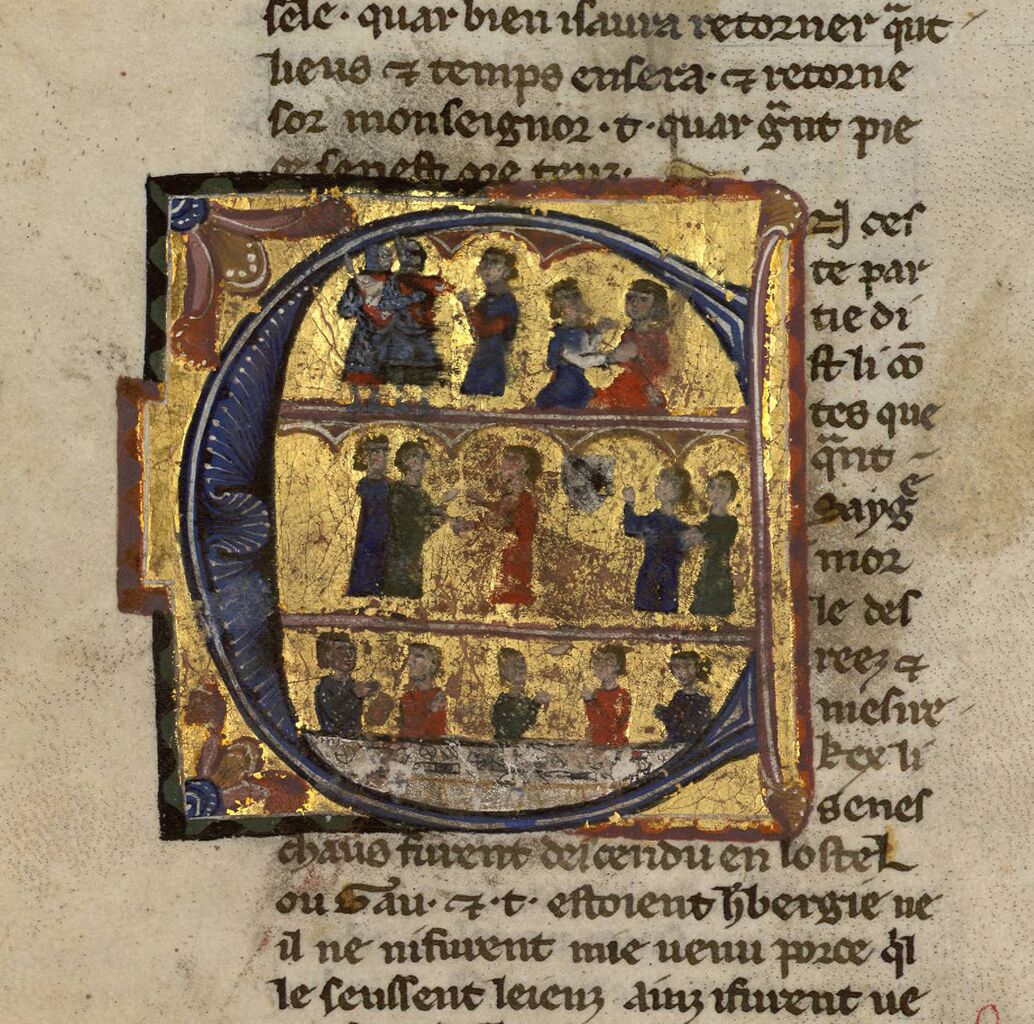 sele · quar bien isaura retorner q̃nt
lieus ⁊ temps ensera · ⁊ retorne
sor monseignor · t · quar g̃nt pie
senest ore tenz ·
N ces
te par
tie di
st li cō
tes que
q̃nt
Gaygͤ
mor
le des
reez ⁊
mesire
kex li
senes
chaus furent descendu en lostel
ou Gau · ⁊ · t · estoient h̄bergie ne
il ne nifurent mie uenu porce q̃l
le seussent leienz ainz ifurent ue